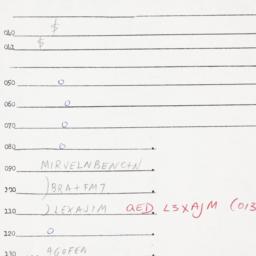 040 $
041 $
050 0
060 0
070 0
080 0
090 MIRVELNBENC+N
100 )BRA+FM7
110 )LEXAJIM QED L3XAJM (013
120 0
130 AGOFER